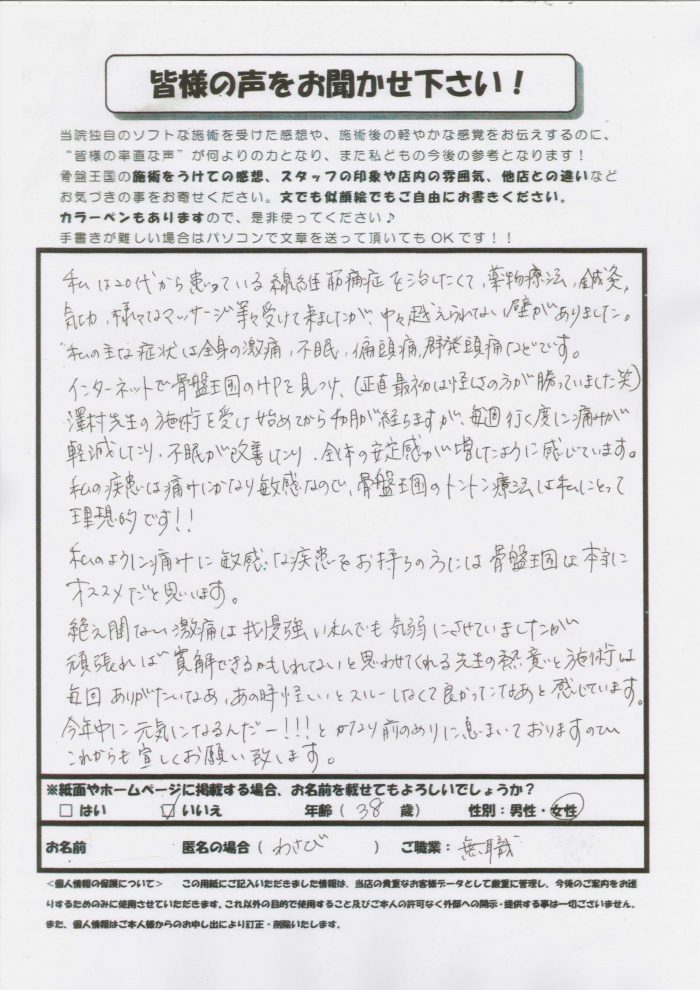 皆様の声をお聞かせ下さい！
当院独自のソフトな施術を受けた感想や、施術後の軽やかな感覚をお伝えするのに、
“皆様の率直な声”が何よりの力となり、また私どもの今後の参考となります！
骨盤王国の施術をうけての感想、スタッフの印象や店内の雰囲気、他店との違いなど
お気づきの事をお寄せください。文でも似顔絵でもご自由にお書きください。
カラーペンもありますので、是非使ってください♪
手書きが難しい場合はパソコンで文章を送って頂いてもOKです！！
私は20代から患っている線維筋痛症を治したくて、薬物療法、鍼灸、
気功、様々なマッサージ等々受けて来ましたが、中々越えられない壁がありました。
私の主な症状は全身の激痛、不眠、偏頭痛、群発頭痛などです。
インターネットで骨盤王国のHPを見つけ、(正直最初は怪しさの方が勝っていました笑)
澤村先生の施術を受け始めてから4ヶ月が経ちますが、毎週行く度に痛みが
軽減したり、不眠が改善したり、全体の安定感が増したように感じています。
私の疾患は痛みにかなり敏感なので、骨盤王国のトントン療法は私にとって
理想的です!!
私のように痛みに敏感な疾患をお持ちの方には骨盤王国は本当に
オススメだと思います。
絶え間ない激痛は我慢強い私でも気弱にさせていましたが
頑張れば寛解できるかもしれないと思わせてくれる先生の熱意と施術は
毎回ありがたいなあ、あの時怪しいとスルーしなくて良かったなあと感じています。
今年中に元気になるんだー!!!とかなり前のめりに息まいておりますので
これからも宜しくお願い致します。
※紙面やホームページに掲載する場合、お名前を載せてもよろしいでしょうか？
□ はい ☑ いいえ 年齢（ 38 歳） 性別：男性・女性
お名前 匿名の場合（ わさび ） ご職業： 無職
＜個人情報の保護について＞ この用紙にご記入いただきました情報は、当店の貴重なお客様データとして厳重に管理し、今後のご案内をお送
りするためのみに使用させていただきます。これ以外の目的で使用すること及びご本人の許可なく外部への開示・提供する事は一切ございません。
また、個人情報はご本人様からのお申し出により訂正・削除いたします。